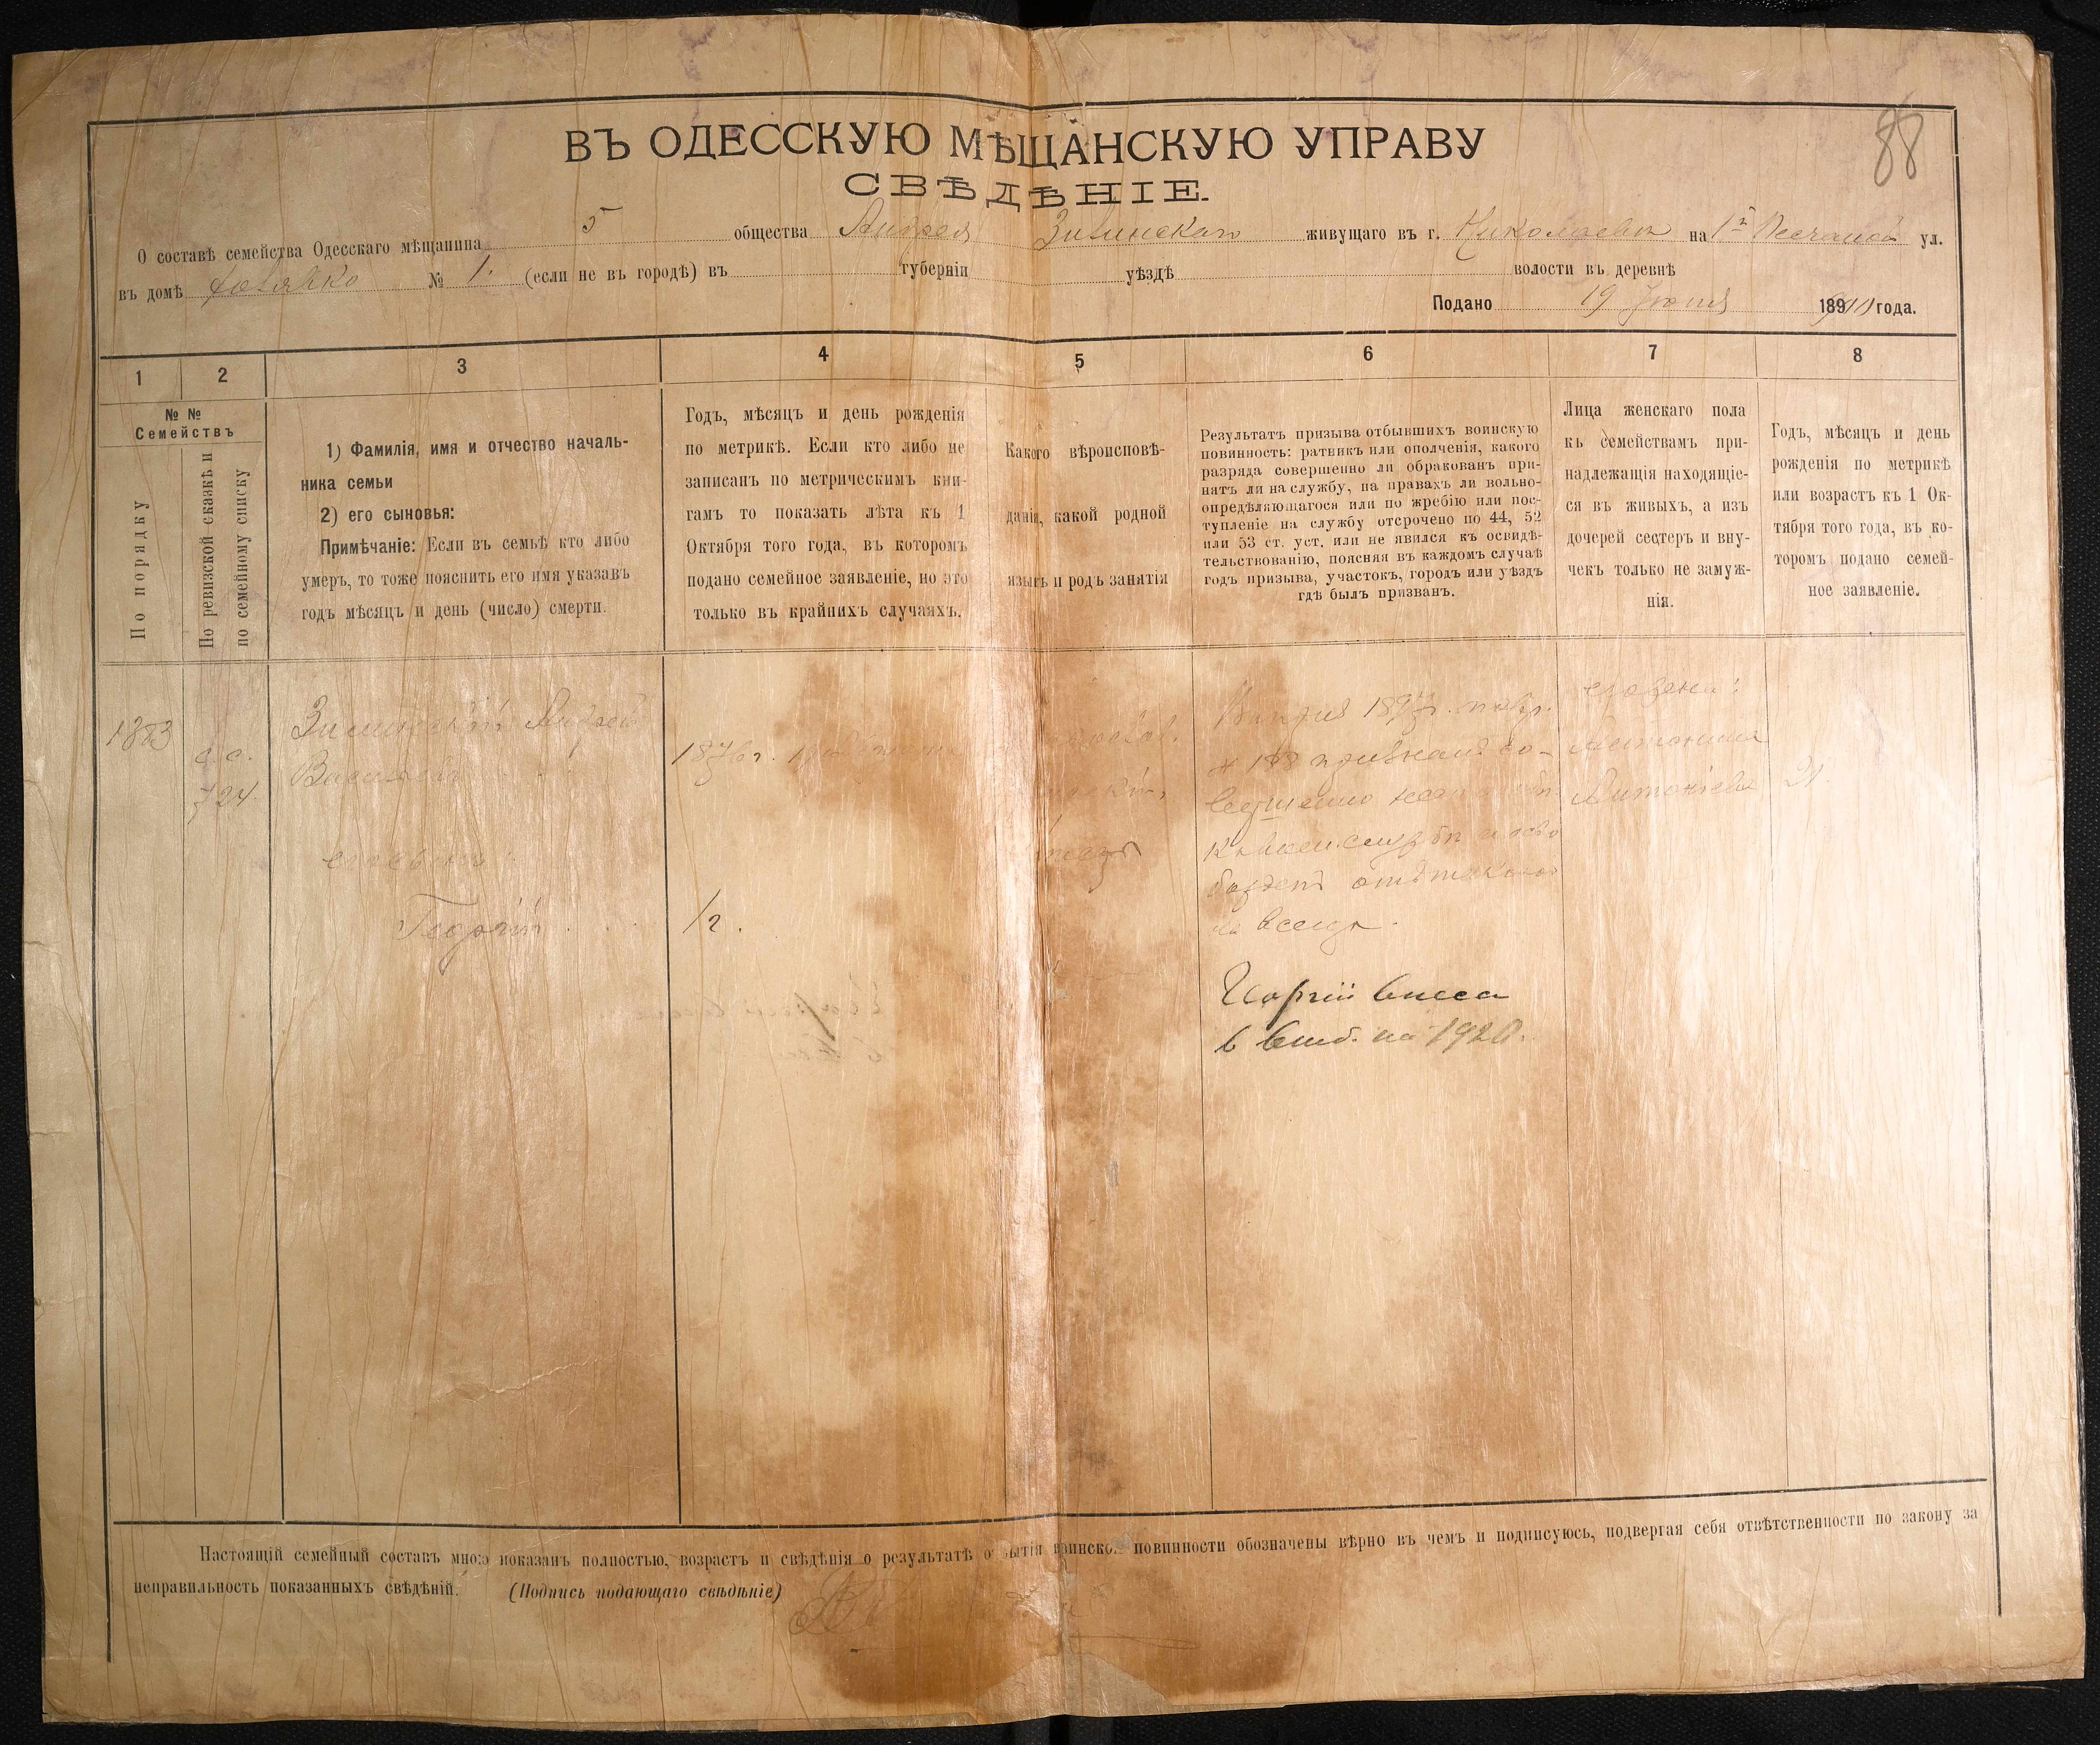 88
ВЪ ОДЕССКУЮ МѢЩАНСКУЮ УПРАВУ
СВѢДѢНІЕ.
О составѣ семейства Одесскаго мѣщанина 5 общества Андрея живущаго въ г. Николаевѣ на 1й Песчаной ул.
въ домѣ № 1. (если не въ городѣ) въ губерніи уѣздѣ волости въ деревнѣ
Подано 19 года.
1
2
3
4
5
6
7
8
№ №
Семействъ
По порядку
По ревизской сказкѣ и
по семейному списку
1) Фамилія, имя и отчество началь-
ника семьи
2) его сыновья:
Примѣчаніе: Если въ семьѣ кто либо
умеръ, то тоже пояснить его имя указавъ
годъ мѣсяцъ и день (число) смерти.
Годъ, мѣсяцъ и день рожденія
по метрикѣ. Если кто либо не
записанъ по метрическимъ кни-
гамъ то показать лѣта къ 1
Октября того года, въ которомъ
подано семейное заявленіе, но это
только въ крайнихъ случаяхъ.
Какого вѣроисповѣ-
данія, какой родной
языкъ и родъ занятія
Результатъ призыва отбывшихъ воинскую
повинность: ратникъ или ополченія, какого
разряда совершенно ли обракованъ при-
нятъ ли на службу, на правахъ ли вольно-
опредѣляющагося или по жребію или пос-
тупленіе на службу отсрочено по 44, 52
или 53 ст. уст. или не явился къ освидѣ-
тельствованію, поясняя въ каждомъ случаѣ
годъ призыва, участокъ, городъ или уѣздъ
гдѣ былъ призванъ.
Лица женскаго пола
къ семействамъ при-
надлежащія находящіе-
ся въ живыхъ, а изъ
дочерей сестеръ и вну-
чекъ только не замуж-
нія.
Годъ, мѣсяцъ и день
рожденія по метрикѣ
или возрастъ къ 1 Ок-
тября того года, въ ко-
торомъ подано семей-
ное заявленіе.
1883
с. с.
724.
Андрей
Васильевъ
сынъ его
Георгій
1/2.
1897г.
№ 188 признанъ со-
вершенно
къ воен. службѣ и осво
божденъ отъ таковой
на всегда.
его жена:
Антонина
Антоніева
21.
Георгій внесен
в внеб. на 1920.
Настоящій семейный составъ мною показанъ полностью, возрастъ и свѣдѣнія о результатѣ отбытія воинской повинности обозначены вѣрно въ чемъ и подписуюсь, подвергая себя отвѣтственности по закону за
неправильность показанныхъ свѣдѣній. (Подпись подающаго свѣдѣніе)